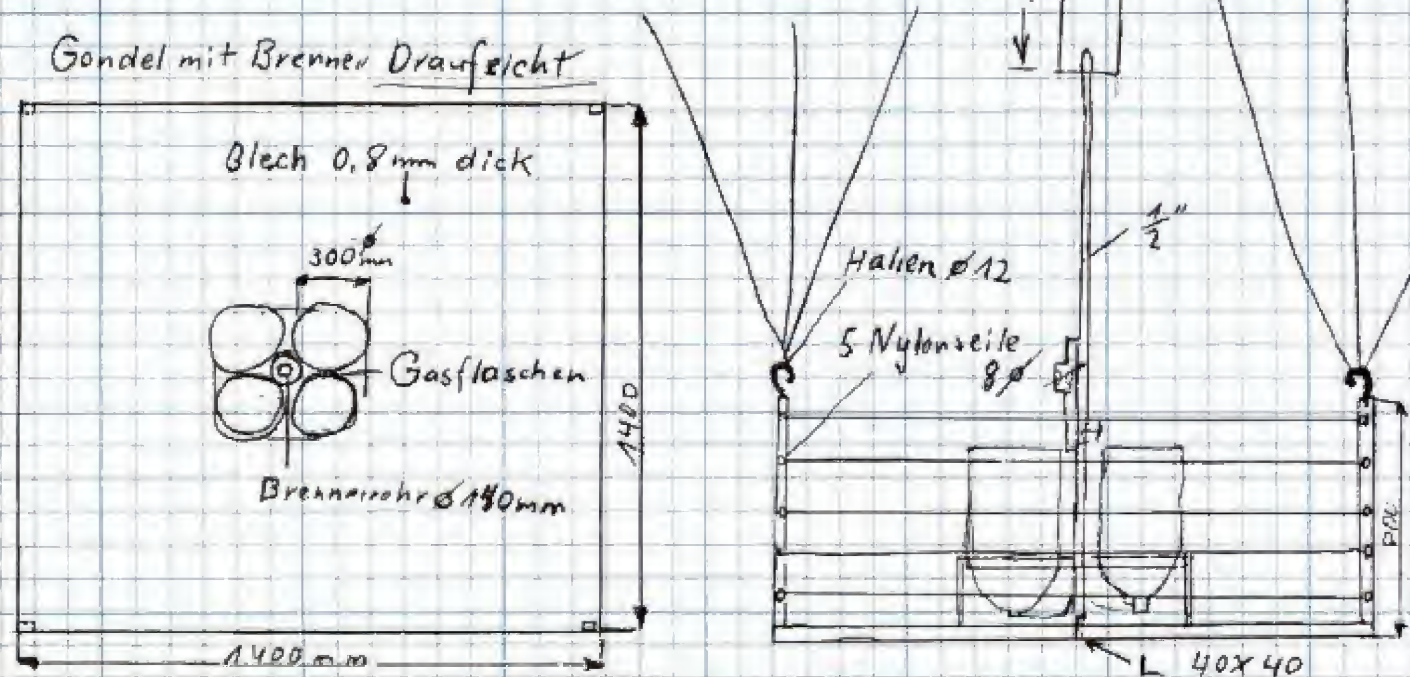 Gondel mit Brenner Draufsicht
Blech 0,8mm dick
300mm ø
Gasflaschen
Brennerrohr ø
1400
1400mm
Haken ø12
5 Nylonseile
8ø
1/2"
L 40x40